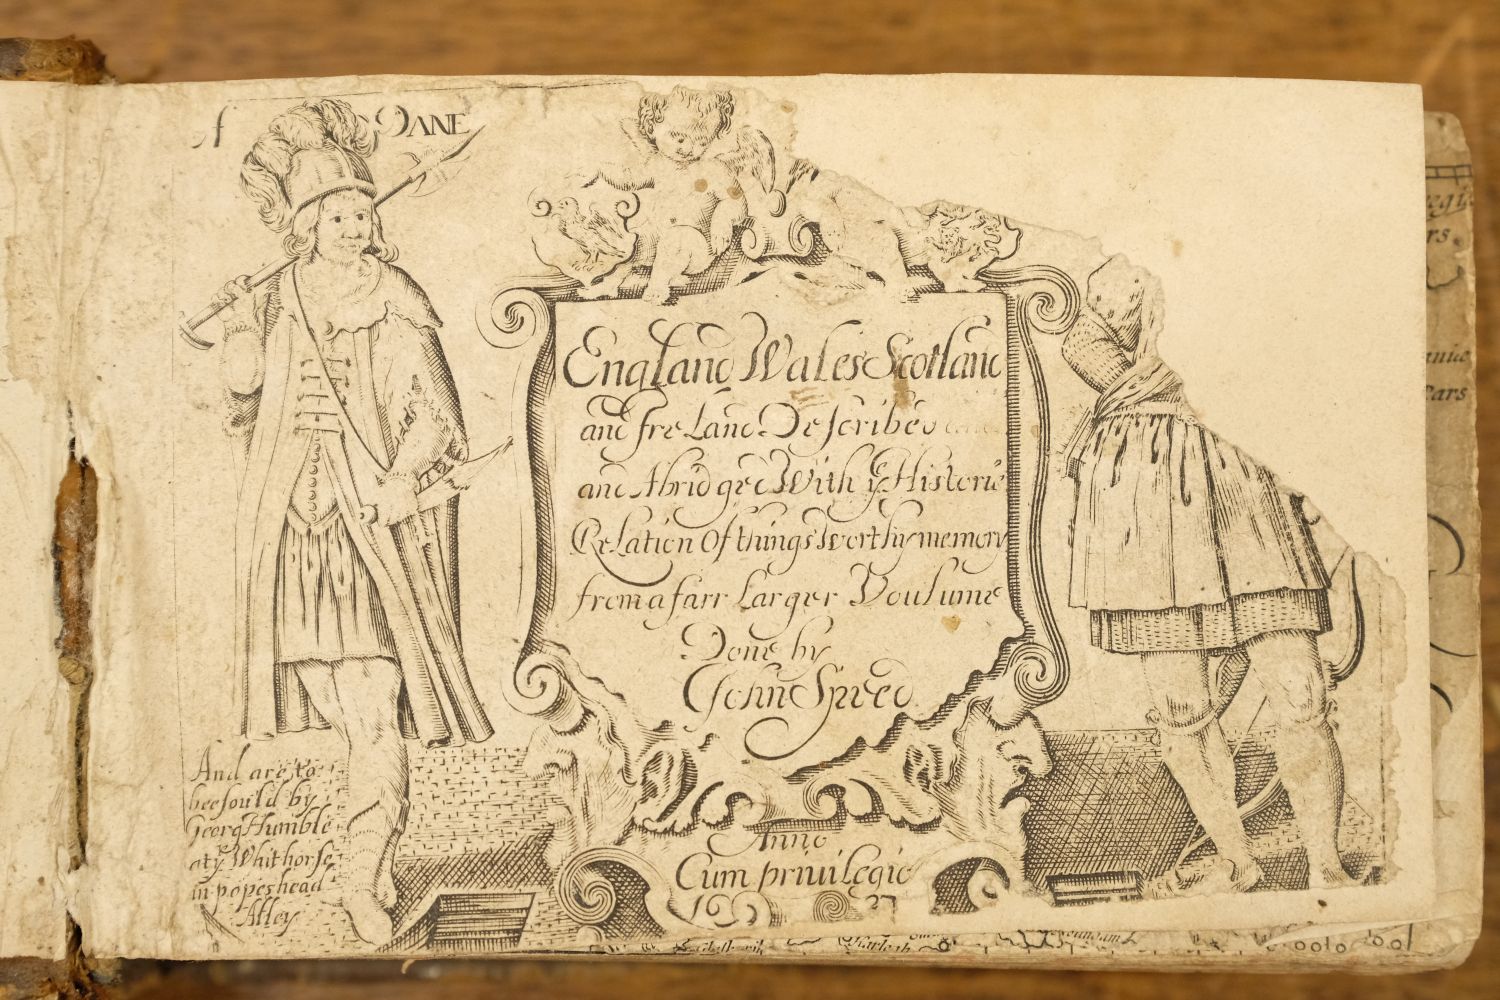 A DANE
England Wales Scotland
and Ireland Described
and Abridged With yͤ Historie
Relation Of things Worthy memory
from a farr Larger Voulume
Done by
John Speed
And are to
bee sould by
Georg Humble
at yͤ Whit horse
in popes head
Alley
Anno
Cum priuilegio
16 27